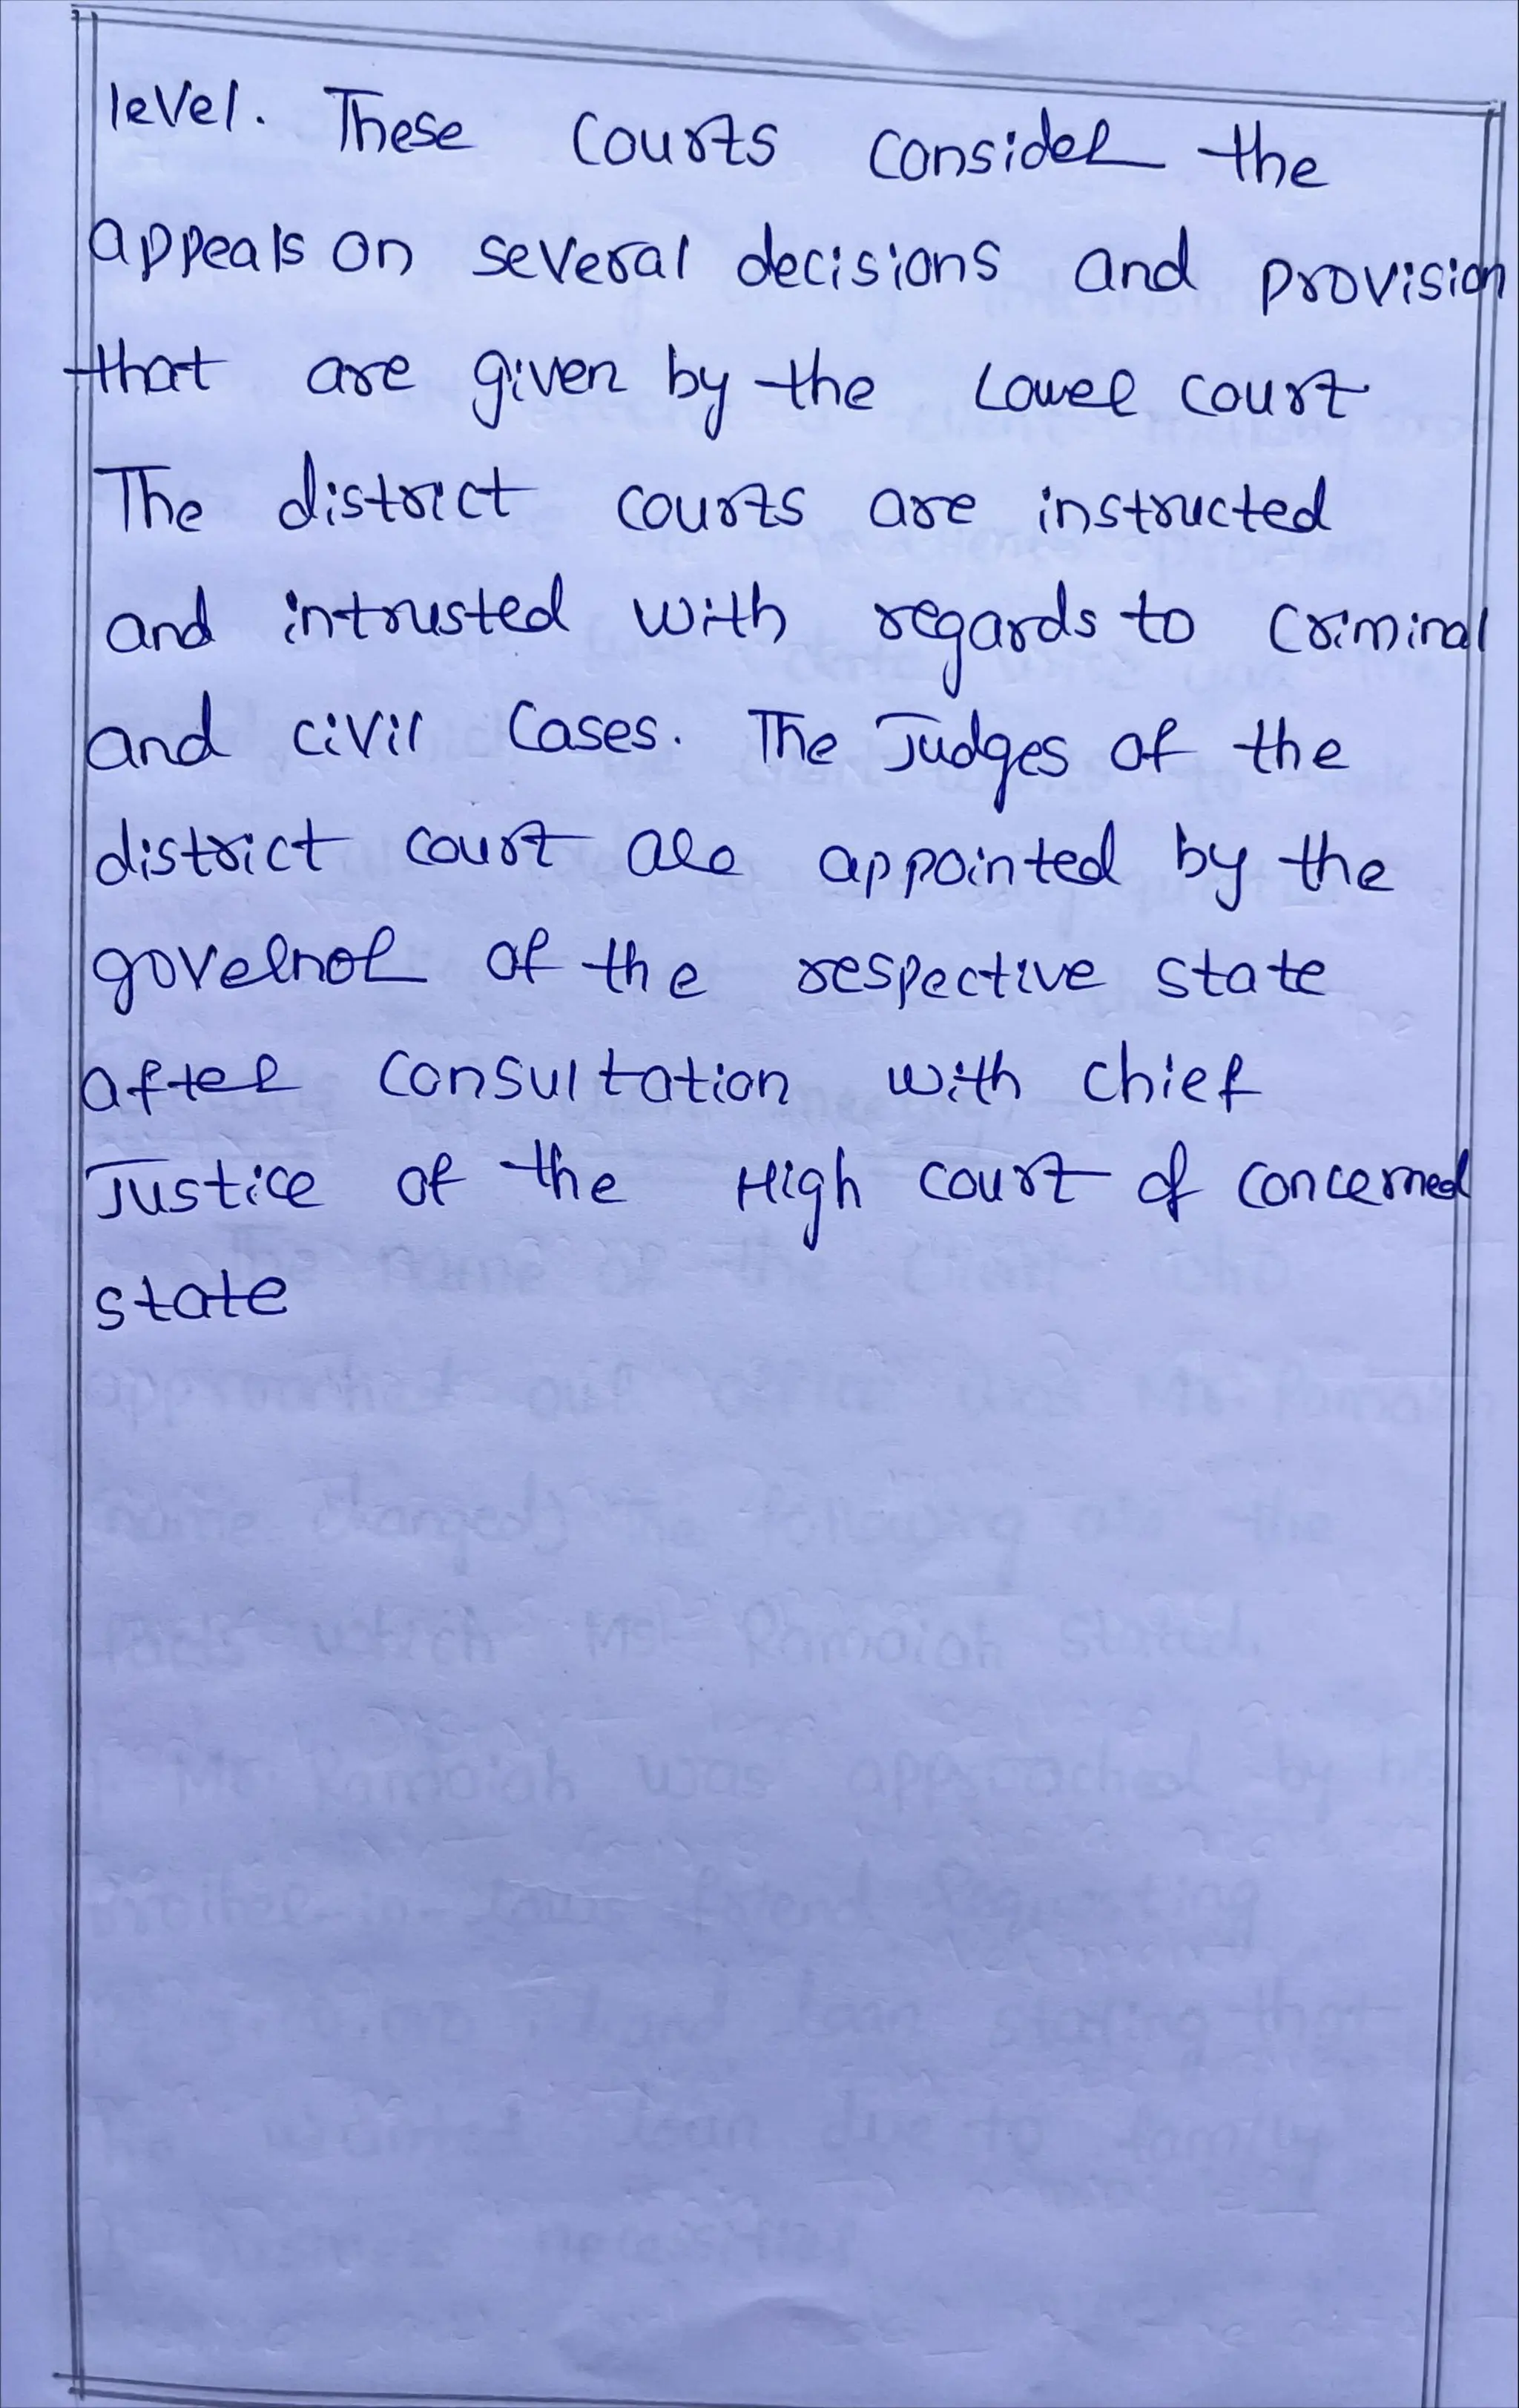 level. These Courts consider the
appeals on several decisions and provision
that are given by the Lower court
The district courts are instructed
and intrusted with regards to criminal
and civil Cases. The Judges of the
district court are appointed by the
governor of the respective state
after Consultation with chief
Justice of the High court of concerned
state